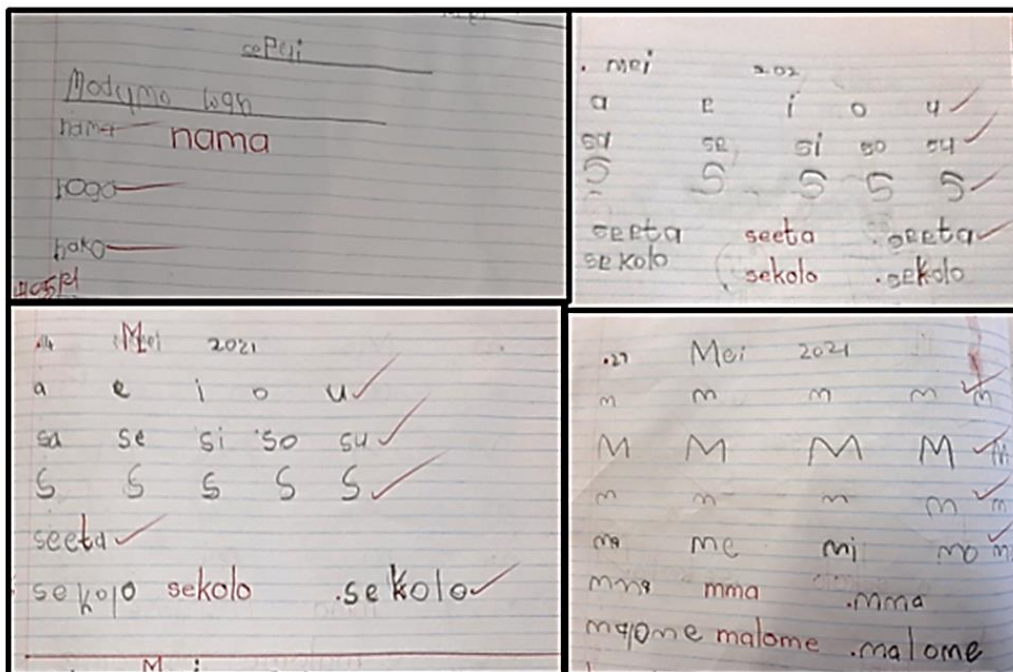 sepeli
Modymo wan
nama nama
roga
hako
. Mei 202
a e i o u
sa se si so su
S S S S S
seeta seeta .seeta
sekolo sekolo .sekolo
Mei 2021
a e i o u
sa se si so su
S S S S S
seeta
sekolo sekolo .sekolo
.27 Mei 2021
m m m m m
M M M M M
m m m m m
ma me mi mo
mma mma .mma
malome malome .malome